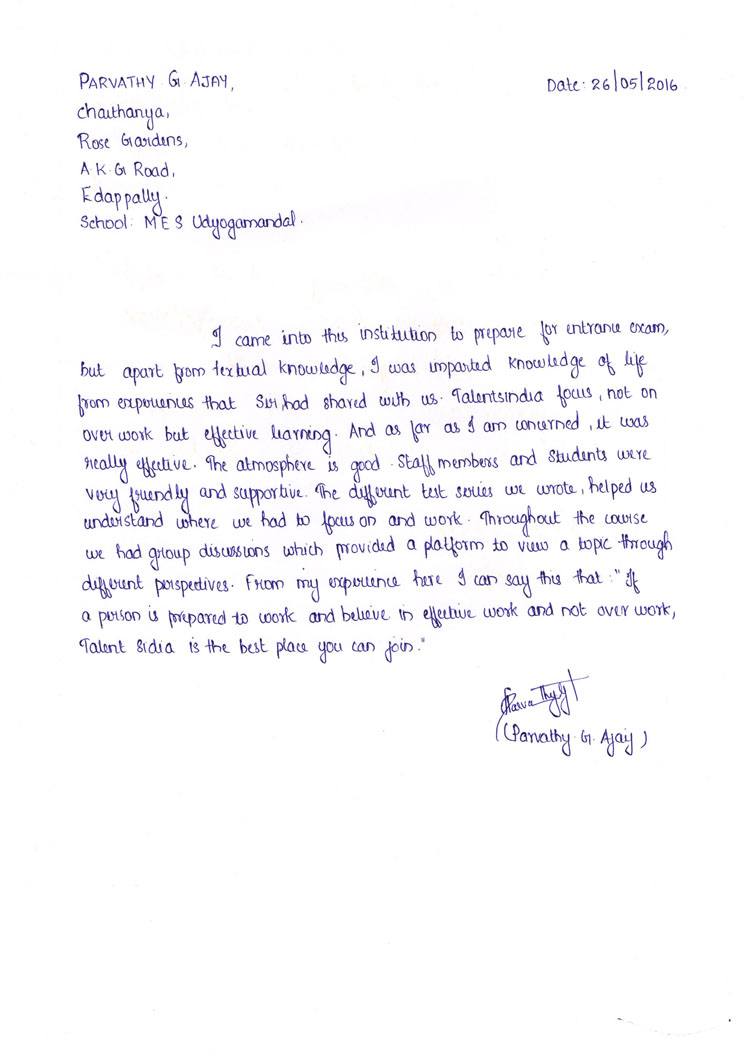 PARVATHY G AJAY,
Date: 26/05/2016
Chaithanya,
Rose Gardens,
A.K.G Road,
Edappally.
School: MES Udyogamandal.
I came into this institution to prepare for entrance exam,
but apart from textual knowledge, I was imparted knowledge of life
from experiences that Sir, had shared with us. TalentsIndia focus, not on
over work but effective learning. And as far as I am concerned, it was
really effective. The atmosphere is good. Staff members and students were
very friendly and supportive. The different test series we wrote, helped us
understand where we had to focus on and work. Throughout the course
we had group discussions which provided a platform to view a topic through
different perspectives. From my experience here I can say this that: "If
a person is prepared to work and believe in effective work and not over work,
Talent is the best place you can join."
Parvathy G
(Parvathy G. Ajay)